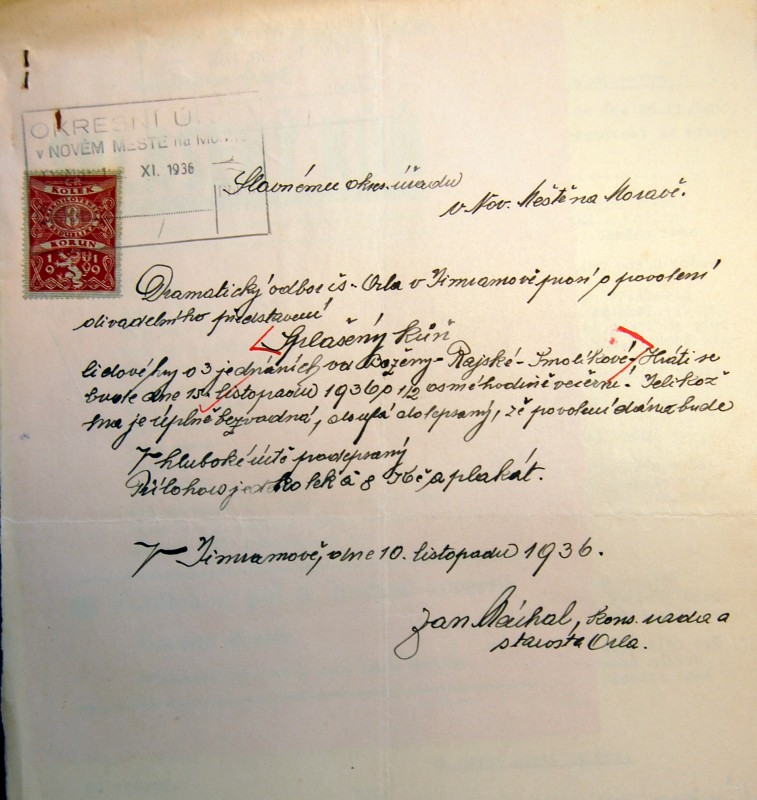 OKRESNÍ Ú
v NOVÉM MĚSTĚ na Mor
XI. 1936
KOLEK
8
KORUN
1919
Slavnému okres. úřadu
v Nov. Městě na Moravě.
Dramatický odbor čs. Orla v Jimramově prosí o povolení
divadelního představení
Splašený kůň
lidové hry o 3 jednáních od Boženy Rajské-Smolíkové. Hráti se
bude dne 15. listopadu 1936 o 1/2 osmé hodině večerní. Jelikož
hra je úplně bezvadná, doufá dolepsaný, že povolení dáno bude
V hluboké úctě podepsaný
Přílohou je kolek à 8 Kč a plakát.
V Jimramově, dne 10. listopadu 1936.
Jan Máchal, kons. rada a
starosta Orla.